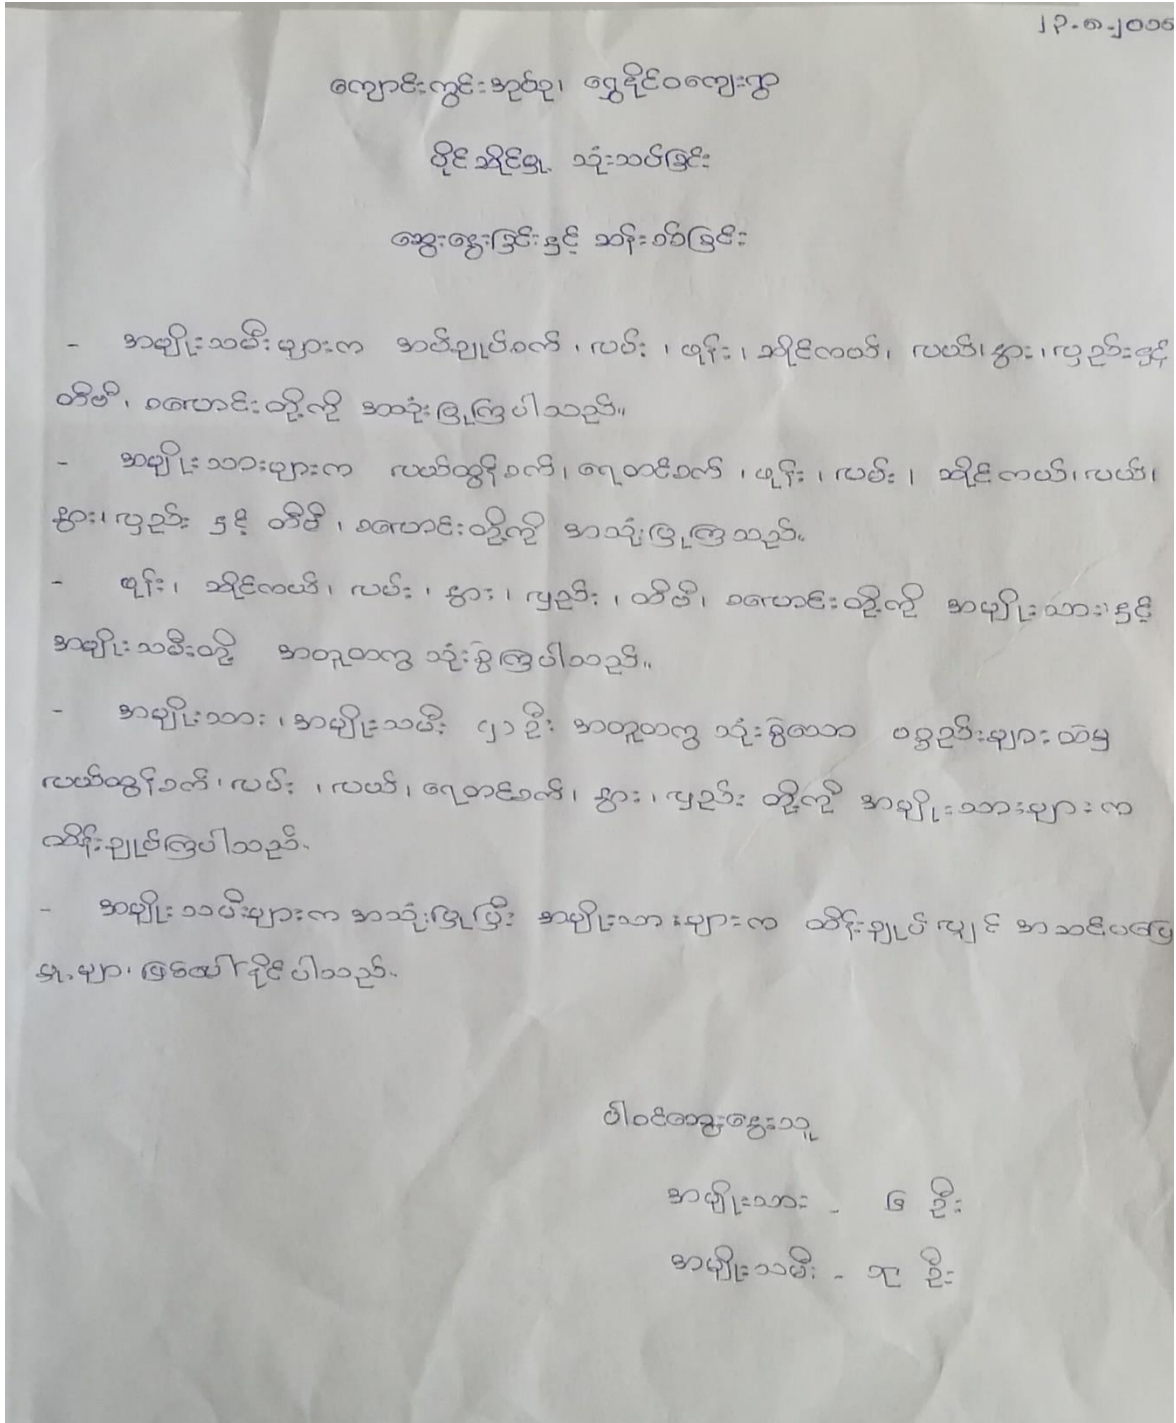 ၂၃-၈-၂၀၁၅
ကျောင်းကွင်းအုပ်စု၊ ရွှေနိုင်ဝကျေးရွာ
ပိုင်ဆိုင်မှု သုံးသပ်ခြင်း
ဆွေးနွေးခြင်းနှင့် ဆန်းစစ်ခြင်း
- အမျိုးသမီးများက အပ်ချုပ်စက်၊ လမ်း၊ ဖုန်း၊ ဆိုင်ကယ်၊ လယ်၊ နွား၊ လှည်းနှင့်
တီဗီ၊ စလောင်းတို့ကို အသုံးပြုကြပါသည်။
- အမျိုးသားများက လယ်ထွန်စက်၊ ရေတင်စက်၊ ဖုန်း၊ လမ်း၊ ဆိုင်ကယ်၊ လယ်၊
နွား၊ လှည်း နှင့် တီဗီ၊ စလောင်းတို့ကို အသုံးပြုကြသည်။
- ဖုန်း၊ ဆိုင်ကယ်၊ လမ်း၊ နွား၊ လှည်း၊ တီဗီ၊ စလောင်းတို့ကို အမျိုးသားနှင့်
အမျိုးသမီးတို့ အတူတကွ သုံးစွဲကြပါသည်။
- အမျိုးသား၊ အမျိုးသမီး ၄၁ ဦး အတူတကွ သုံးစွဲသော ပစ္စည်းများထဲမှ
လယ်ထွန်စက်၊ လမ်း၊ လယ်၊ ရေတင်စက်၊ နွား၊ လှည်း တို့ကို အမျိုးသားများက
ထိန်းချုပ်ကြပါသည်။
- အမျိုးသမီးများက အသုံးပြုပြီး အမျိုးသားများက ထိန်းချုပ်လျှင် အဆင်မပြေ
မှုများ ဖြစ်ပေါ်နိုင်ပါသည်။
ပါဝင်ဆွေးနွေးသူ
အမျိုးသား - ၆ ဦး
အမျိုးသမီး - ၁၄ ဦး